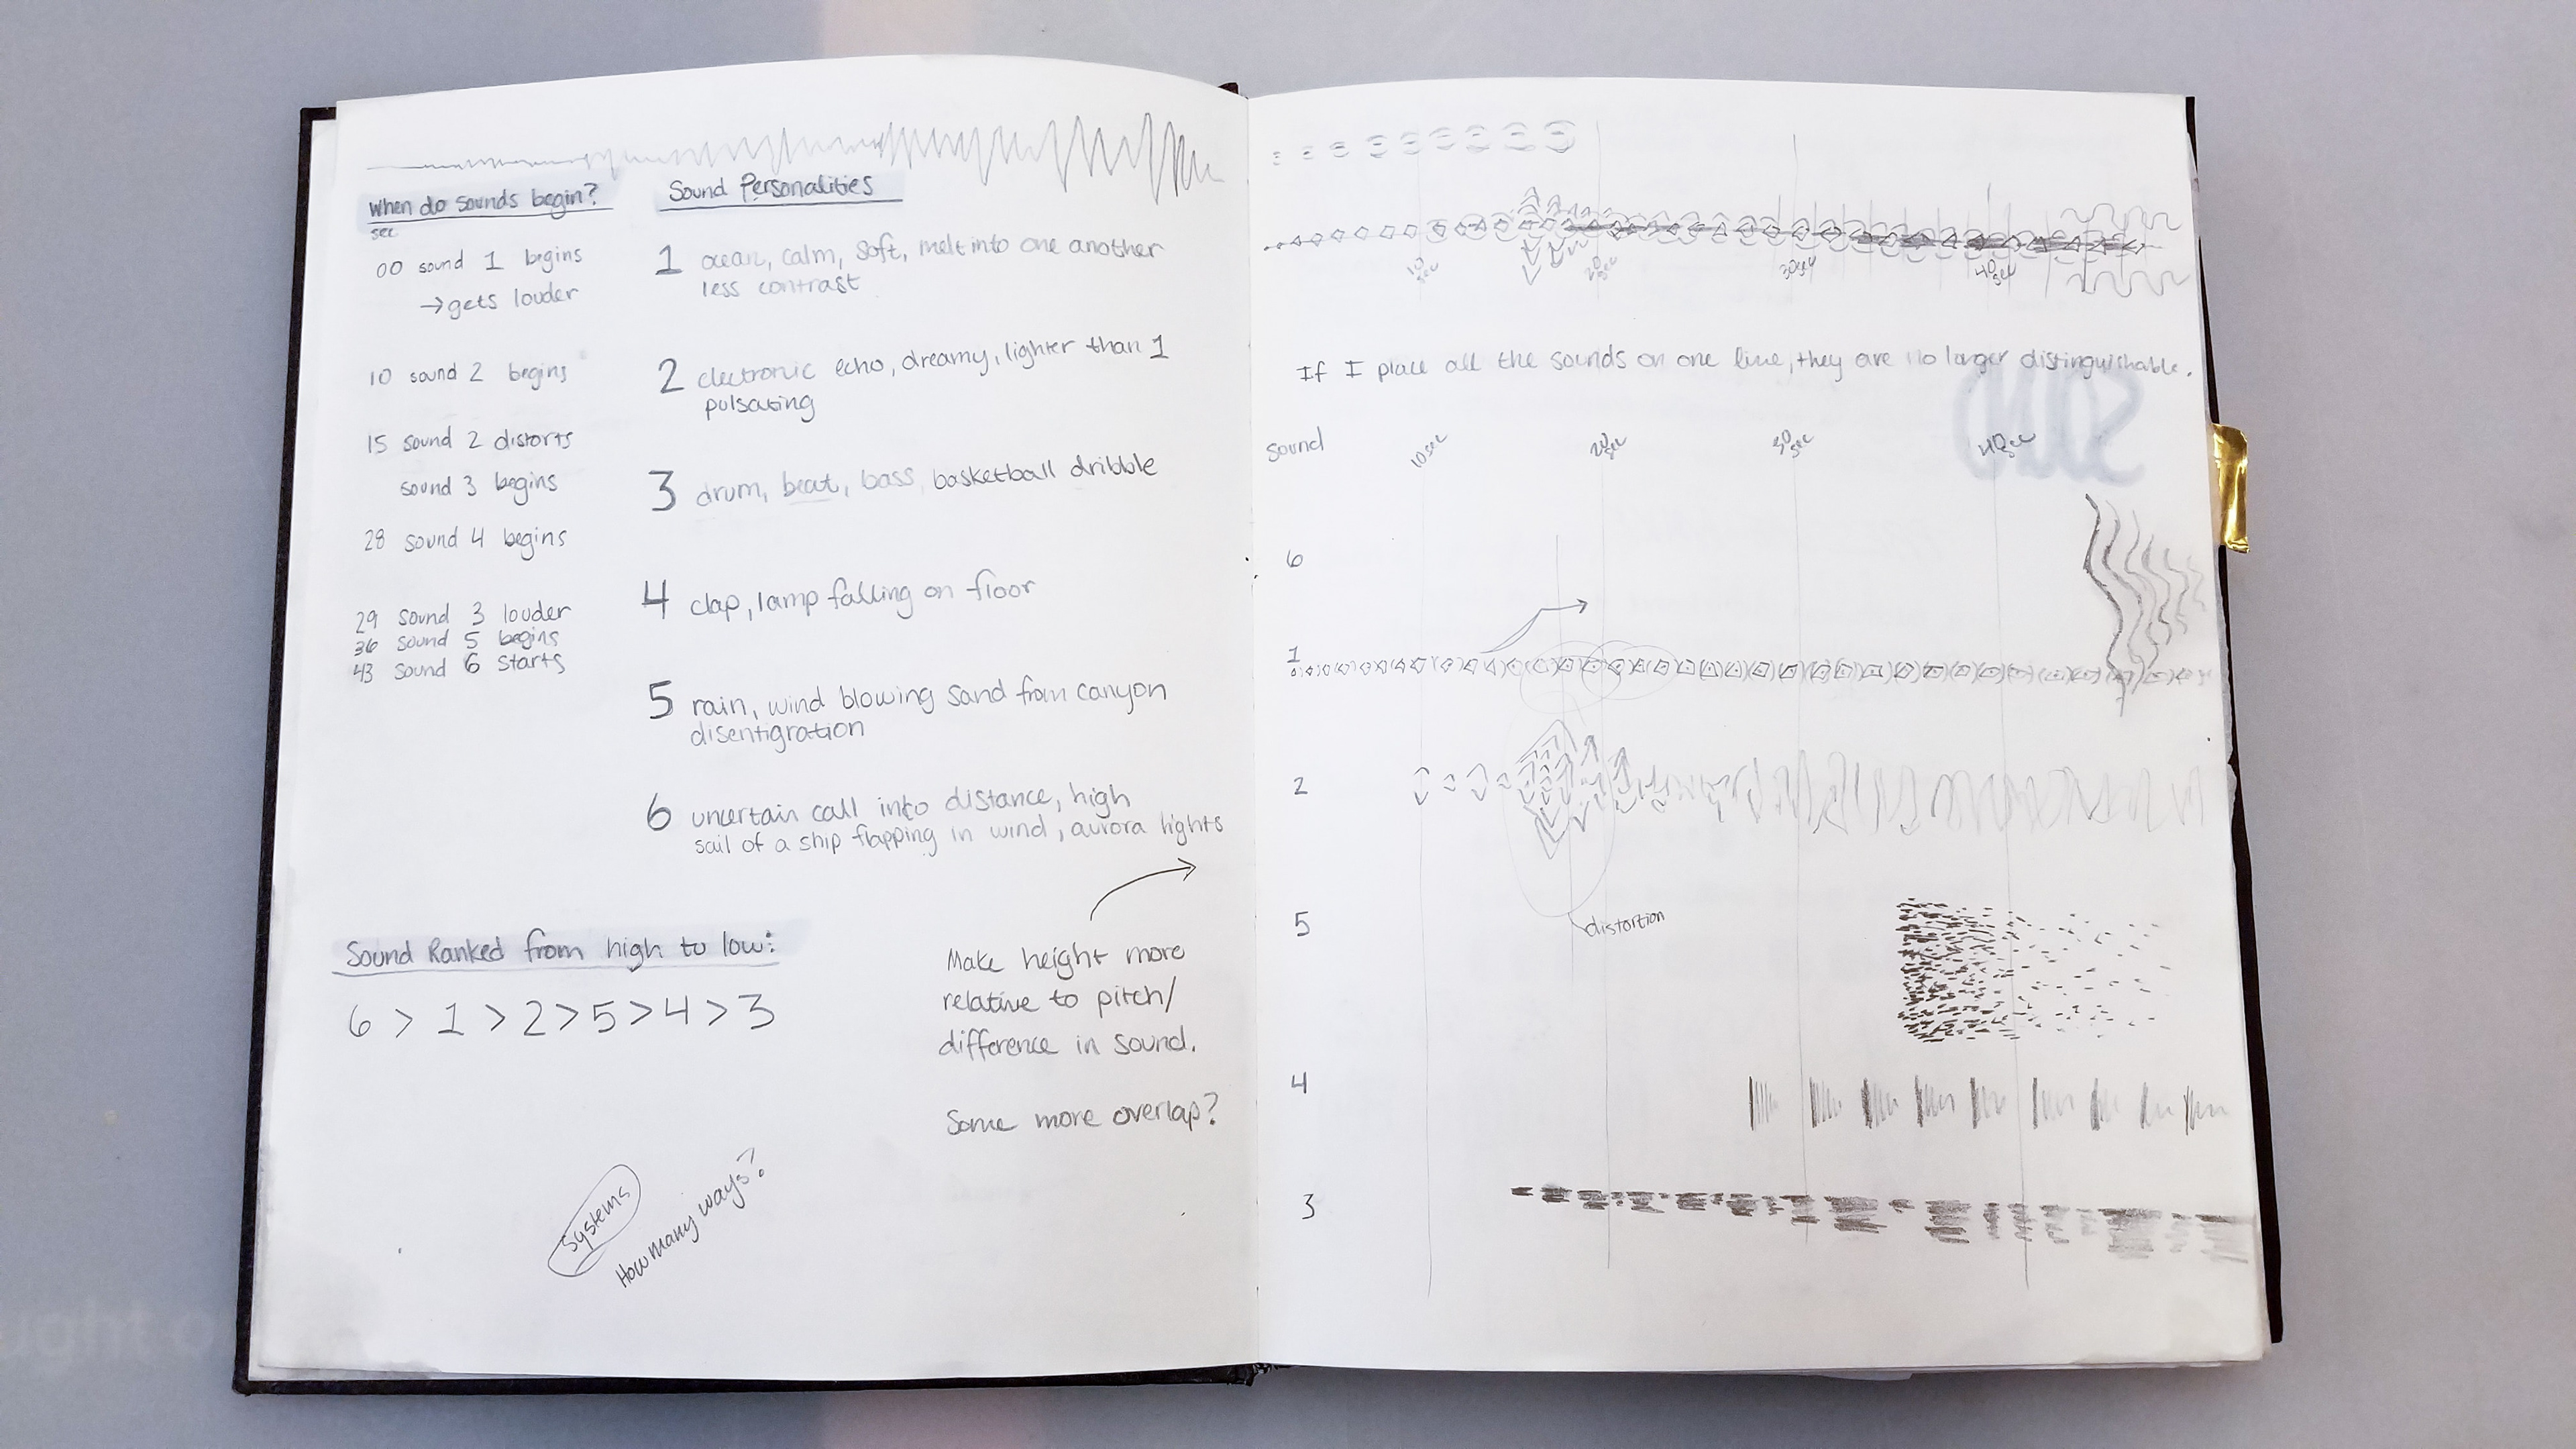 When do sounds begin?
sec
00 sound 1 begins
→gets louder
10 sound 2 begins
15 sound 2 distorts
sound 3 begins
28 sound 4 begins
29 sound 3 louder
36 sound 5 begins
43 sound 6 starts
Sound Personalities
1 ocean, calm, soft, melt into one another
less contrast
2 electronic echo, dreamy, lighter than 1
pulsating
3 drum, beat, bass, basketball dribble
4 clap, lamp falling on floor
5 rain, wind blowing sand from canyon
disentigration
6 uncertain call into distance, high
sail of a ship flapping in wind, aurora lights
Sound Ranked from high to low:
6 > 1 > 2 > 5 > 4 > 3
Make height more
relative to pitch/
difference in sound.
Some more overlap?
Systems
How many ways?
10 sec
20 sec
30 sec
40 sec
If I place all the sounds on one line, they are no longer distinguishable.
sound
10 sec
20 sec
30 sec
40 sec
6
1
2
distortion
5
4
3
ught o